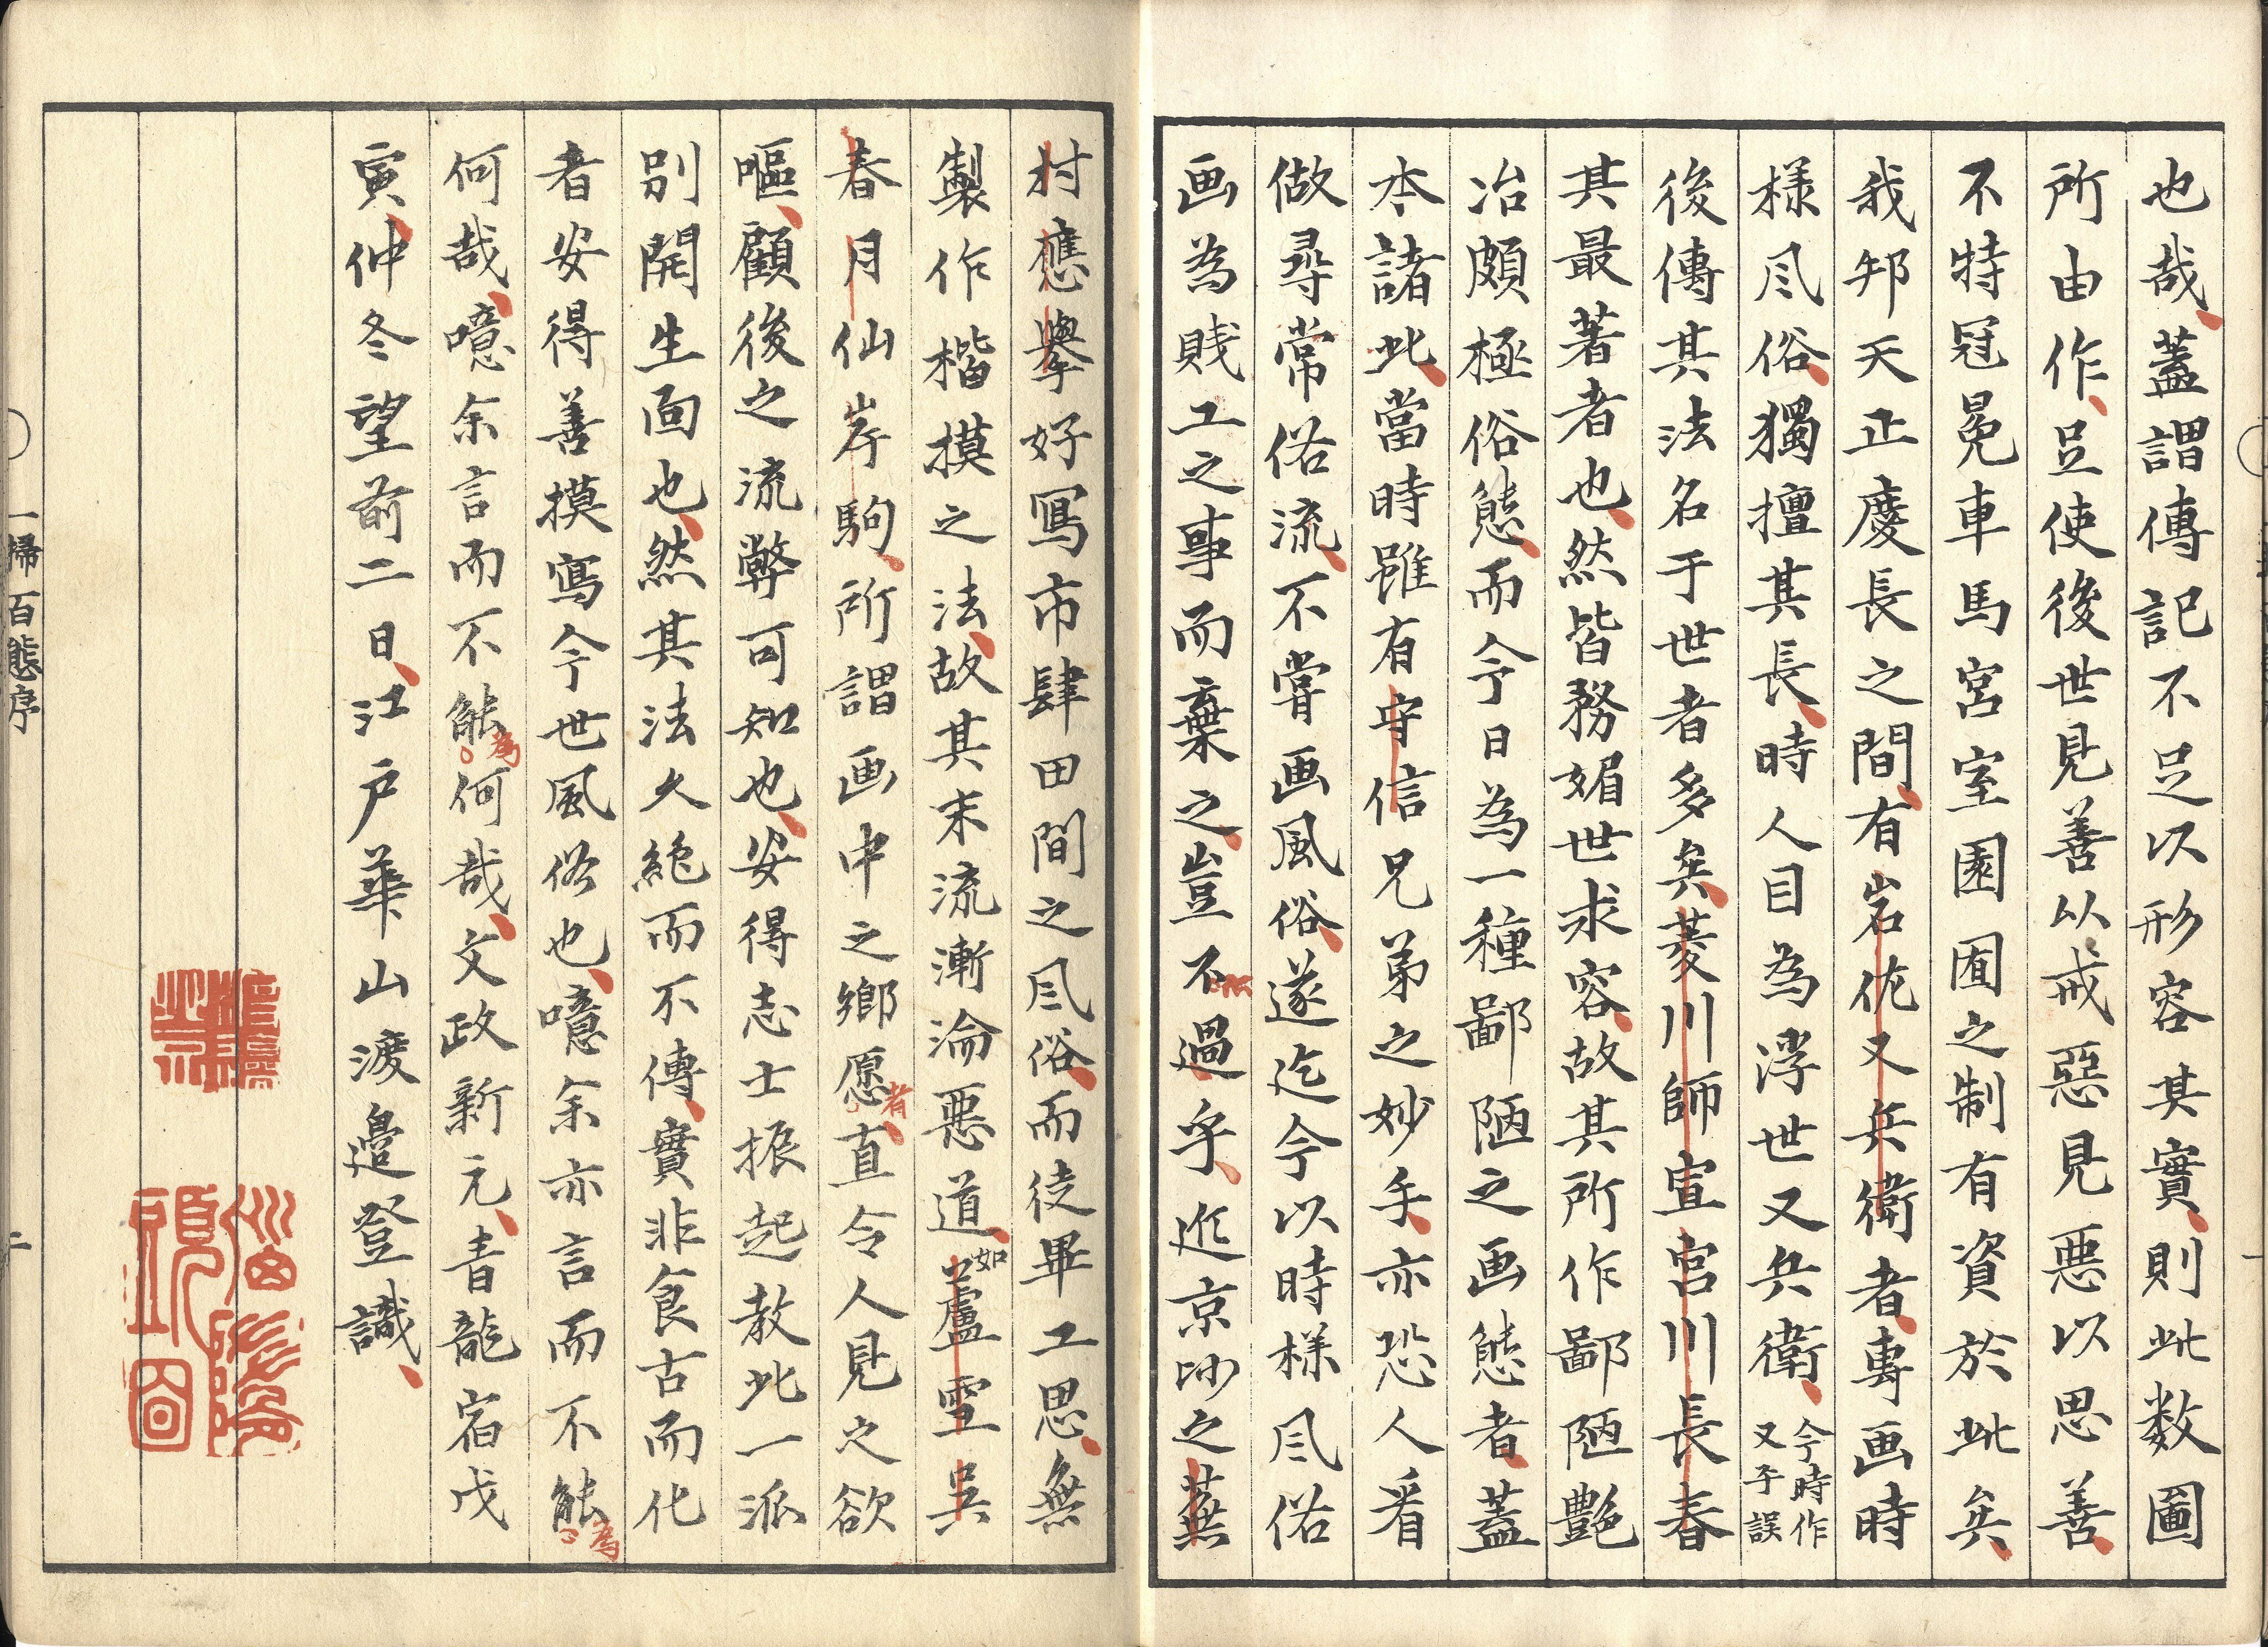 也哉蓋謂傳記不足以形容其實則此数圖
所由作足使後世見善以戒惡見惡以思善
不特冠冕車馬宮室園囿之制有資於此矣
我邦天正慶長之間有岩佐又兵衛者專画時
様風俗獨擅其長時人目為浮世又兵衛今時作又平誤
後傳其法名于世者多矣菱川師宣宮川長春
其最著者也然皆務媚世求容故其所作鄙陋艶
冶頗極俗態而今日為一種鄙陋之画態者蓋
本諸此當時雖有守信兄弟之妙手亦恐人看
做尋常俗流不嘗画風俗遂迄今以時様風俗
画為賎工之事而棄之豈不過乎近京吵之蕪
村應擧好寫市肆田間之風俗而徒畢工思無
製作楷摸之法故其末流漸淪惡道如蘆雪吳
春月仙岸駒所謂画中之鄉愿者直令人見之欲
嘔顧後之流弊可知也安得志士振起救此一派
別開生面也然其法久絶而不傳實非食古而化
者安得善摸寫今世風俗也噫余亦言而不能為
何哉噫余言而不能為何哉文政新元青龍宿戊
寅仲冬望前二日江戸華山渡邉登識
一掃百態序
二